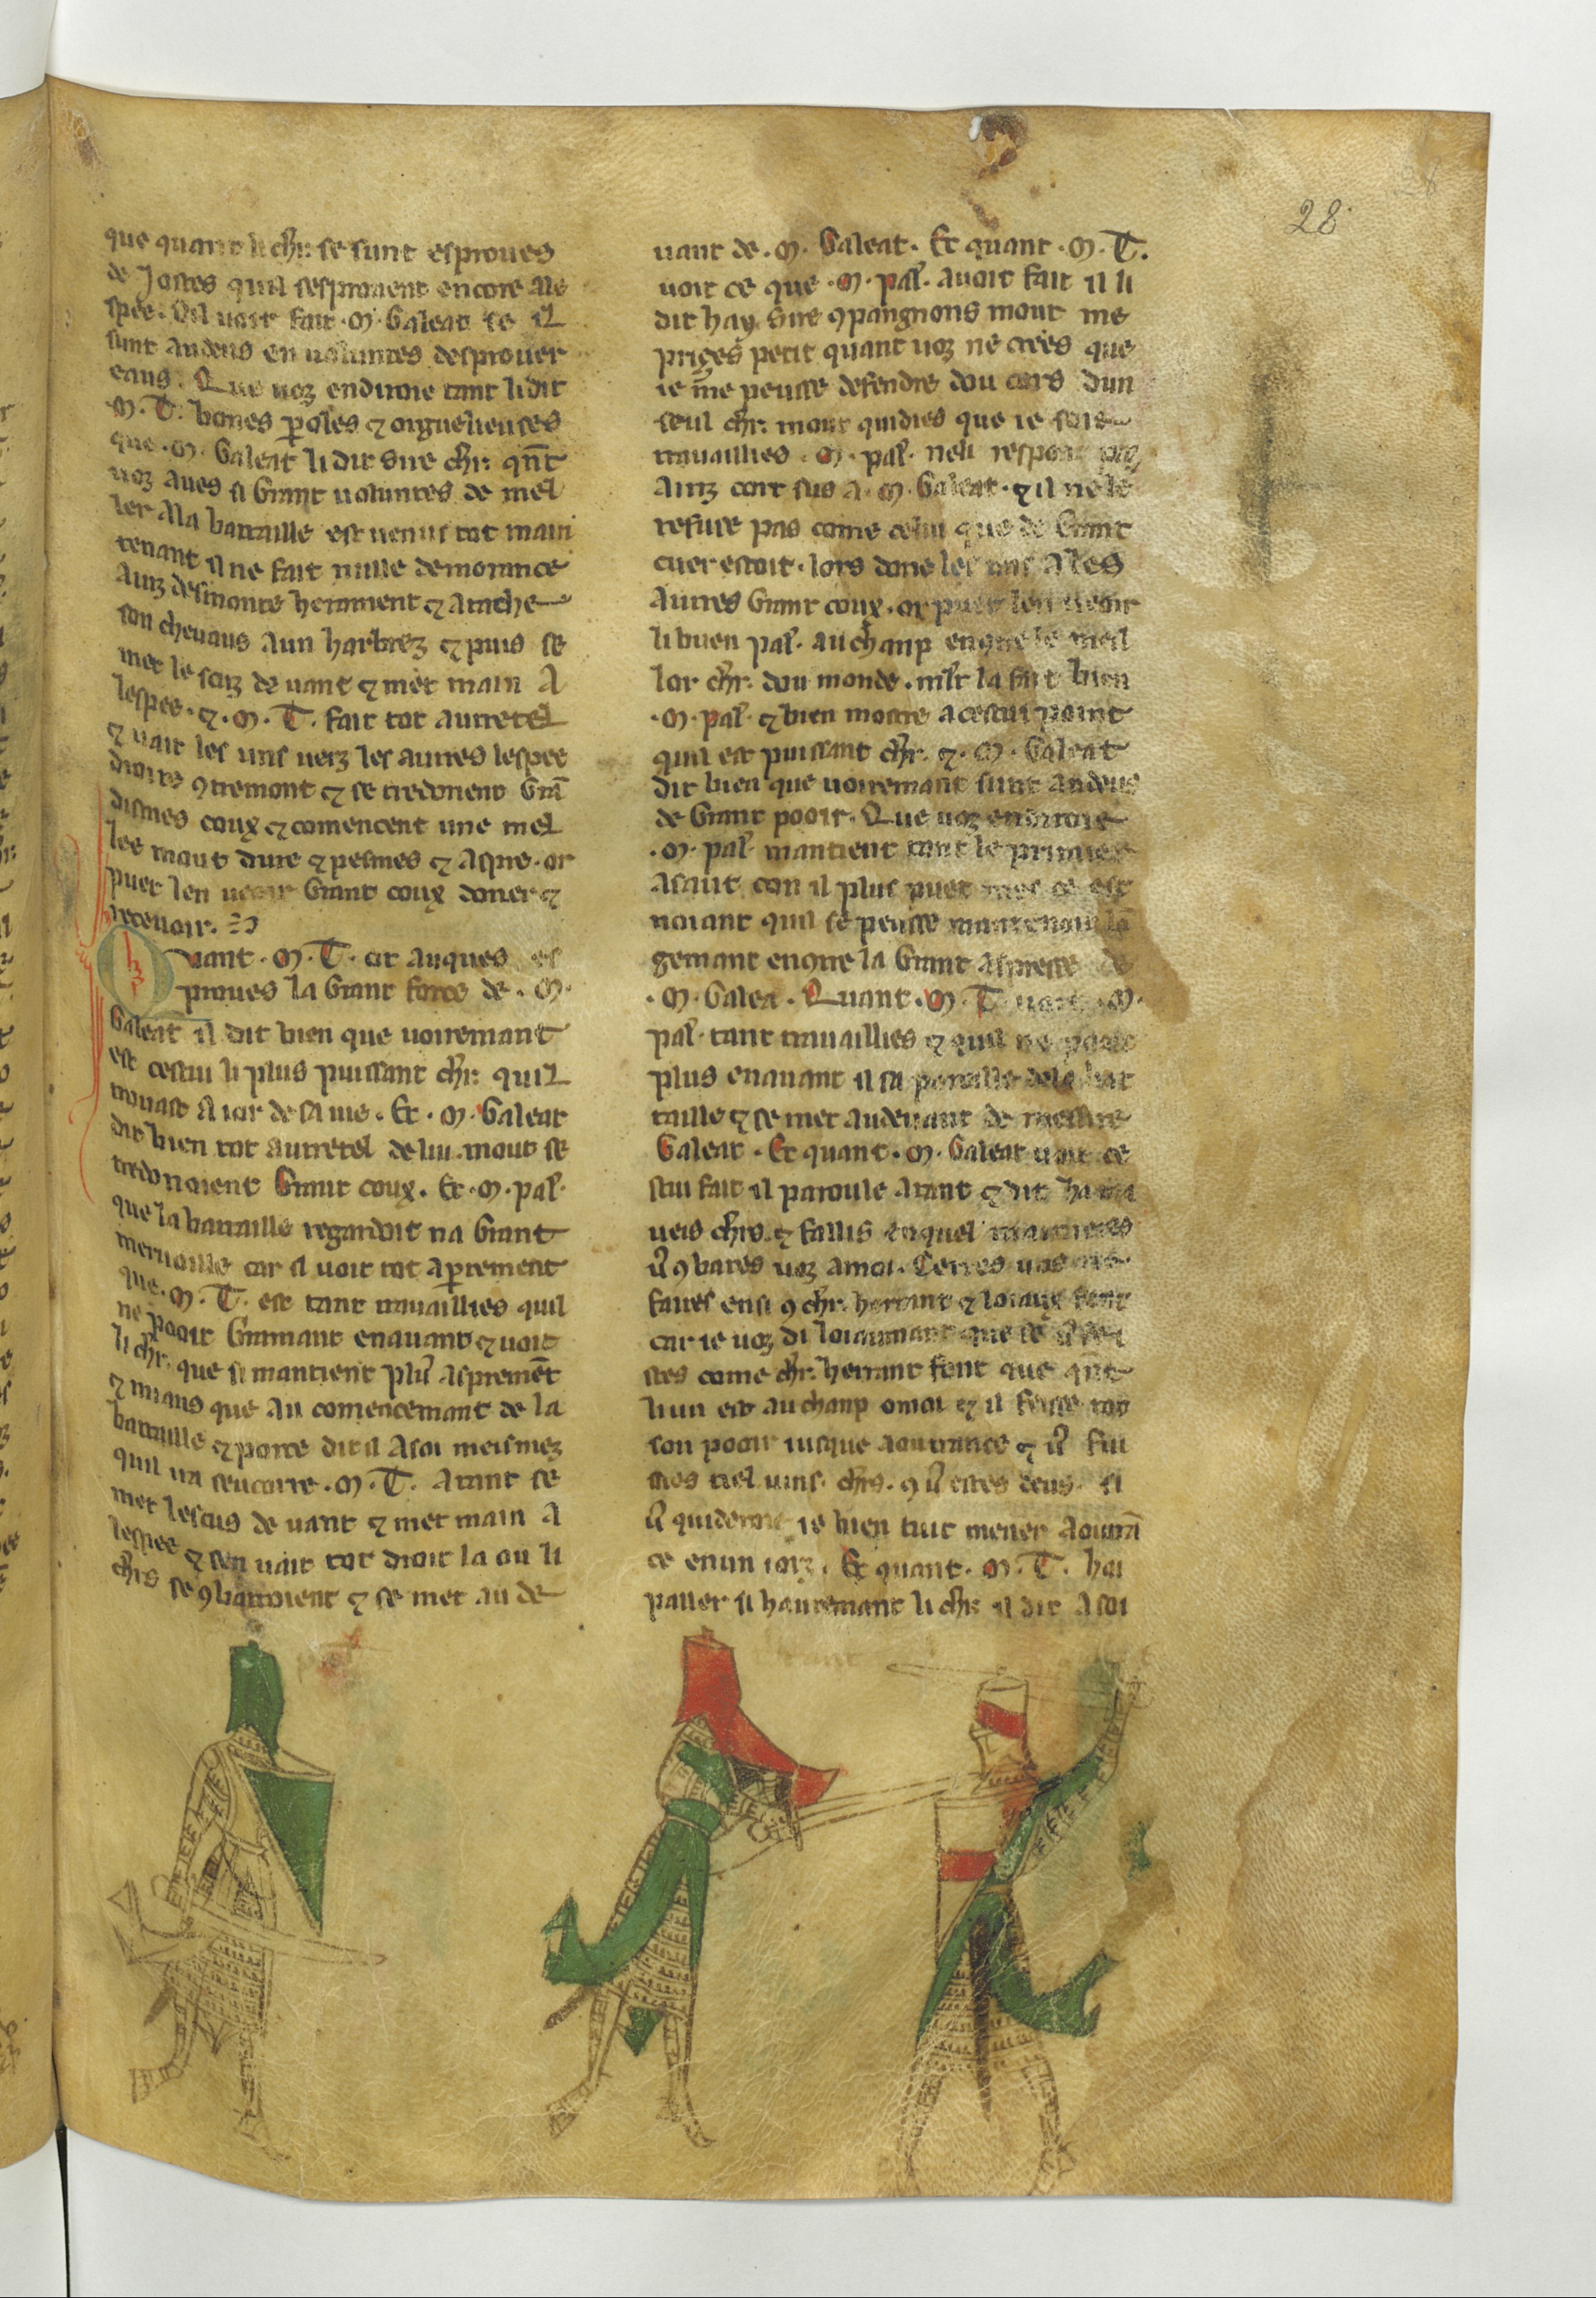 28
que quant li chr: se sunt esproues
de Jostes quil sesproient encore ale
spee. Qil uait fait .M. Galeat se il
sunt andeus en uoluntes desprouer
eaus. Que uoz endiroie tant li dit
.M. T. bones p̲oles ⁊ orguelieuses
que .M. Galeat li dit Sire chr: qn̄t
uoz aues si Grant uoluntes de mel
ler ala bataille est uenus tot main
tenant il ne fait nulle demorance
Ainz desmonte herraument ⁊ atache
son cheuaus a un harbrez ⁊ puis se
met le scuz de uant ⁊ met main a
lespee. ⁊ .M. T. fait tot autretel
⁊ uait les uns uerz les autres lespee
droite ꝯtremont ⁊ se tredonent Grā
dismes coux ⁊ comencent une mel
lee mout dure ⁊ pesmes ⁊ aspre. or
puet len ueoir Grant coux doner ⁊
receuoir.
Quant .M. T. ot auques es
proues la Grant force de .M.
Galeat il dit bien que uoiremant
est cestui li plus puissant chr: quil
trouast a ior de sa uie. Et .M. Galeat
dit bien tot autretel de lui. mout se
tredonoient Grant coux. Et .M. pal̄.
que la bataille regardoit na Grant
meruoille car il uoit tot ap̲tement
que .M. T. est tant trauaillies quil
ne pooit Gramant enauant ⁊ uoit
li chr: que si mantient plus aspremēt
⁊ miaus que au comencemant de la
bataille ⁊ porce dit il a soi meismez
quil ira secorre .M. T. Atant se
met lescus de uant ⁊ met main a
lespee ⁊ sen uait tot droit la ou li
chrs se ꝯbatoient ⁊ se met au de
uant de .M. Galeat. Et quant .M. T.
uoit ce que .M. pal̄. auoit fait il li
dit hay Sire ꝯpangnons mout me
prises petit quant uoz ne crees que
ie me peusse defendre dou cors dun
seul chr: mout quidies que ie soie
trauaillies. .M. pal̄. neli respont
Ainz cort sus a .M. Galeat. ⁊ il ne le
refuse pas come celui que de Grant
cuer estoit. lors done les uns ales
autres Grant coux. or puet len ueoir
li buen pal̄. au chanp enꝯtre le meil
lor chr: dou monde. mlt la fait bien
.M. pal̄. ⁊ bien mostre a cestui point
quil est puissant chr: ⁊ .M. Galeat
dit bien que uoiremant sunt andeus
de Grant pooir. Que uoz endiroie
.M. pal̄. mantient tant le primier
asaut con il plus puet mes ce est
noiant quil se peusse maintenoir lō
gemant enꝯtre la Grant aspresse de
.M. Galea. Quant .M. T. uoit .M.
pal̄. tant trauaillies ⁊ quil ne
plus enauant il sa de la bat
taille ⁊ se met audeuant de messire
Galeat. Et quant .M. Galeat uoit ce
stui fait il paroule atant ⁊ dit ha
ueis chrs. ⁊ fallis enquel
ꝯbates uoz amoi. Certes uos
faites ensi ꝯ chr: herrant ⁊ loiaux font
car ie uoz di loiaumant que se
stes come chr: herrant font que qn̄t
li un est au chanp o moi ⁊ il feisse tot
son pooir iusque aoutrance ⁊ fui
chrs. ꝯ estes deus. si
ie bien tuit mener aoutrā
ce enun iorz. Et quant .M. T. hoi
parler si hautemant li chr: il dit a soi